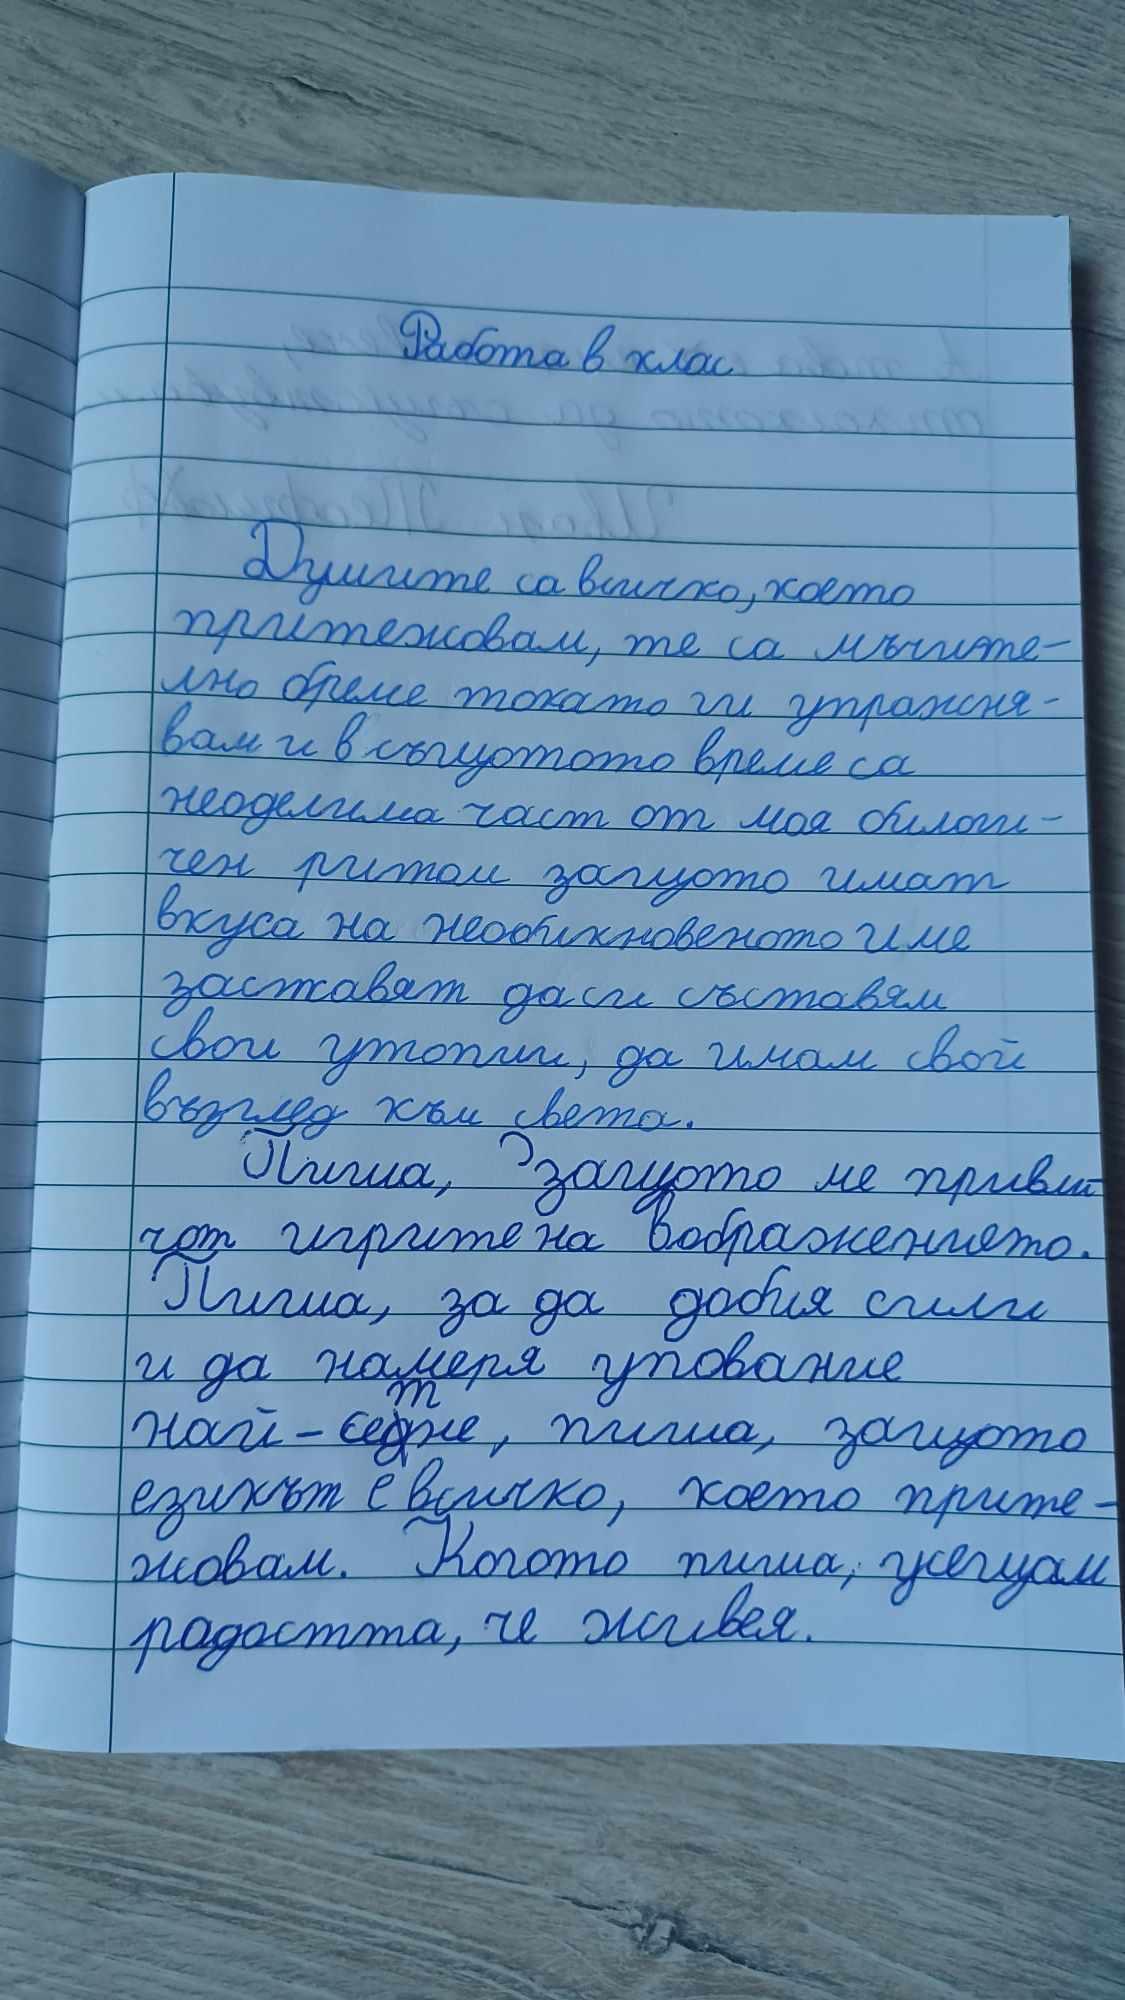 Работа в клас
Думите са всичко, което
притежавам, те са мъчите-
лно бреме токато ги упражня-
вам и в същотото време са
неоделима част от моя билоги-
чен ритъм защото имат
вкуса на необикновеното и ме
заставят да си съставям
свои утопии, да имам свой
възглед към света.
Пиша, защото ме привли
чат игрите на въображението.
Пиша, за да добия сили
и да намеря упование
най-сетне, пиша, защото
езикът е всичко, което прите-
жавам. Когато пиша, усещам
радостта, че живея.